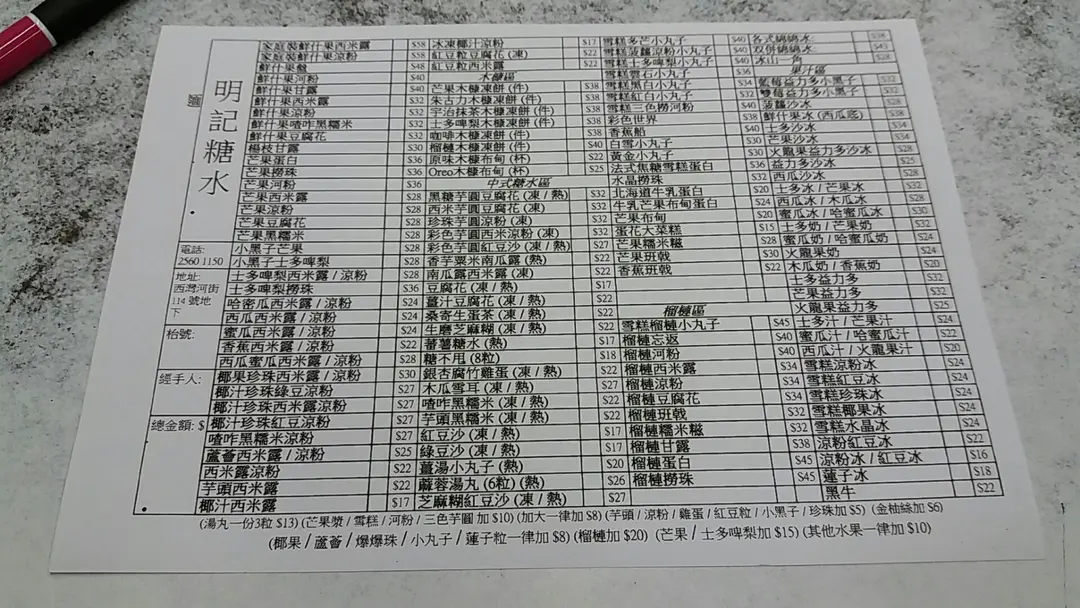 明記糖水
電話:
2560 1150
地址:
西灣河街
114 號地
下
枱號:
經手人:
總金額: $
家庭裝鮮什果西米露 $58
家庭裝鮮什果涼粉 $58
鮮什果河粉 $40
鮮什果甘露
鮮什果西米露
鮮什果涼粉
鮮什果喳咋黑糯米
鮮什果豆腐花
楊枝甘露
芒果蛋白
芒果撈珠
芒果河粉
芒果西米露
芒果涼粉
芒果豆腐花
芒果黑糯米
小黑子芒果
小黑子士多啤梨
士多啤梨西米露 / 涼粉
士多啤梨撈珠
哈密瓜西米露 / 涼粉
西瓜西米露 / 涼粉
蜜瓜西米露 / 涼粉
香蕉西米露 / 涼粉
西瓜蜜瓜西米露 / 涼粉
椰果珍珠西米露 / 涼粉
椰汁珍珠綠豆涼粉
椰汁珍珠西米露涼粉
椰汁珍珠紅豆涼粉
喳咋黑糯米涼粉
蘆薈西米露 / 涼粉
西米露涼粉
芋頭西米露
椰汁西米露
冰凍椰汁涼粉 $17
紅豆粒豆腐花 (凍) $22
紅豆粒西米露 $22
木糠區
芒果木糠凍餅 (件) $38
朱古力木糠凍餅 (件) $38
宇治抹茶木糠凍餅 (件) $38
士多啤梨木糠凍餅 (件) $38
咖啡木糠凍餅 (件) $38
榴槤木糠凍餅 (件) $40
原味木糠布甸 (杯) $22
Oreo木糠布甸 (杯) $25
中式糖水區
黑糖芋圓豆腐花 (凍 / 熱) $32
西米芋圓豆腐花 (凍) $32
珍珠芋圓涼粉 (凍) $32
彩色芋圓西米涼粉 (凍) $32
彩色芋圓紅豆沙 (凍 / 熱) $27
香芋粟米南瓜露 (熱) $22
南瓜露西米露 (凍) $22
豆腐花 (凍 / 熱) $17
薑汁豆腐花 (凍 / 熱) $22
桑寄生蛋茶 (凍 / 熱) $22
生磨芝麻糊 (凍 / 熱) $22
蕃薯糖水 (熱) $17
糖不甩 (8粒) $18
銀杏腐竹雞蛋 (凍 / 熱) $22
木瓜雪耳 (凍 / 熱) $27
喳咋黑糯米 (凍 / 熱) $22
芋頭黑糯米 (凍 / 熱) $22
紅豆沙 (凍 / 熱) $17
綠豆沙 (凍 / 熱) $17
薑湯小丸子 (熱) $20
蔴蓉湯丸 (6粒) (熱) $26
芝麻糊紅豆沙 (凍 / 熱) $27
雪糕多芒小丸子 $40
雪糕菠蘿涼粉小丸子 $40
雪糕士多啤梨小丸子 $40
雪糕雲石小丸子 $36
雪糕黑白小丸子
雪糕紅白小丸子
雪糕三色撈河粉
彩色世界
香蕉船
白雪小丸子
黃金小丸子
法式焦糖雪糕蛋白
水晶撈珠
北海道牛乳蛋白
牛乳芒果布甸蛋白
芒果布甸
蛋花大菜糕
芒果糯米糍
芒果班戟
香蕉班戟
榴槤區
雪糕榴槤小丸子 $45
榴槤忘返 $40
榴槤河粉 $40
榴槤西米露 $34
榴槤涼粉 $34
榴槤豆腐花 $34
榴槤班戟 $32
榴槤糯米糍 $32
榴槤甘露 $38
榴槤蛋白 $45
榴槤撈珠 $45
各式綿綿冰 $38
双併綿綿冰 $43
冰山一角 $28
果汁區
葡萄益力多小黑子 $32
雙莓益力多小黑子 $32
菠蘿沙冰 $28
鮮什果冰 (西瓜底) $38
士多沙冰 $28
芒果沙冰 $28
火龍果益力多沙冰 $28
益力多沙冰 $25
西瓜沙冰 $28
士多冰 / 芒果冰
西瓜冰 / 木瓜冰
蜜瓜冰 / 哈蜜瓜冰
士多奶 / 芒果奶
蜜瓜奶 / 哈蜜瓜奶
火龍果奶
木瓜奶 / 香蕉奶
士多益力多
芒果益力多
火龍果益力多
士多汁 / 芒果汁
蜜瓜汁 / 哈蜜瓜汁
西瓜汁 / 火龍果汁
雪糕涼粉冰 $24
雪糕紅豆冰 $24
雪糕珍珠冰 $24
雪糕椰果冰 $24
雪糕水晶冰 $24
涼粉紅豆冰 $22
涼粉冰 / 紅豆冰 $16
蓮子冰 $18
黑牛 $22
(湯丸一份3粒 $13) (芒果漿 / 雪糕 / 河粉 / 三色芋圓 加 $10) (加大一律加 $8) (芋頭 / 涼粉 / 雞蛋 / 紅豆粒 / 小黑子 / 珍珠加 $5) (金柚絲加 $6)
(椰果 / 蘆薈 / 爆爆珠 / 小丸子 / 蓮子粒一律加 $8) (榴槤加 $20) (芒果 / 士多啤梨加 $15) (其他水果一律加 $10)